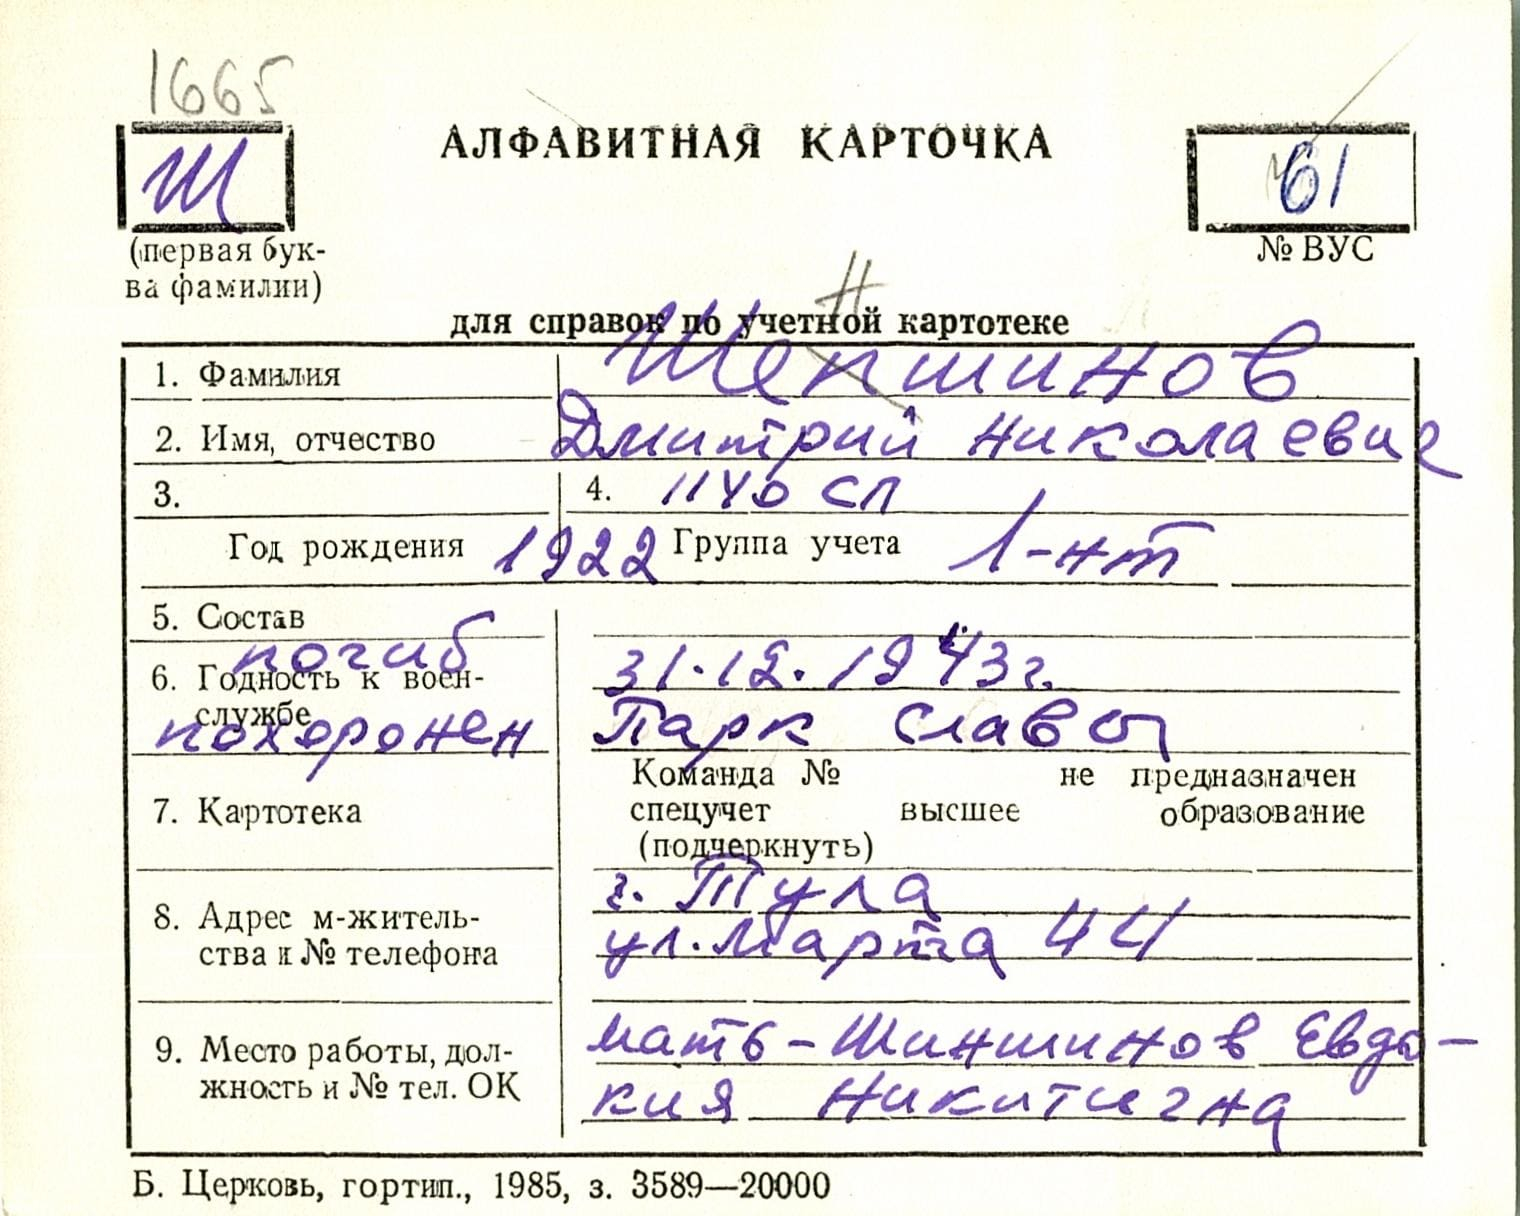 1665
Ш
АЛФАВИТНАЯ КАРТОЧКА
61
(первая бук-
ва фамилии)
№ ВУС
н
для справок по учетной картотеке
1. Фамилия Шепшинов
2. Имя, отчество Дмитрий Николаевич
3. 4. 1140 сп
Год рождения 1922 Группа учета 1-нт
5. Состав
погиб 31.12.1943г.
6. Годность к воен-
службе
похоронен Парк Славы
Команда № не предназначен
7. Картотека спецучет высшее образование
(подчеркнуть)
г. Тула
8. Адрес м-житель-
ства и № телефона ул. Марта 44
9. Место работы, дол-
жность и № тел. ОК
мать - Шиншинов Евдо-
кия Никитична
Б. Церковь, гортип., 1985, з. 3589—20000